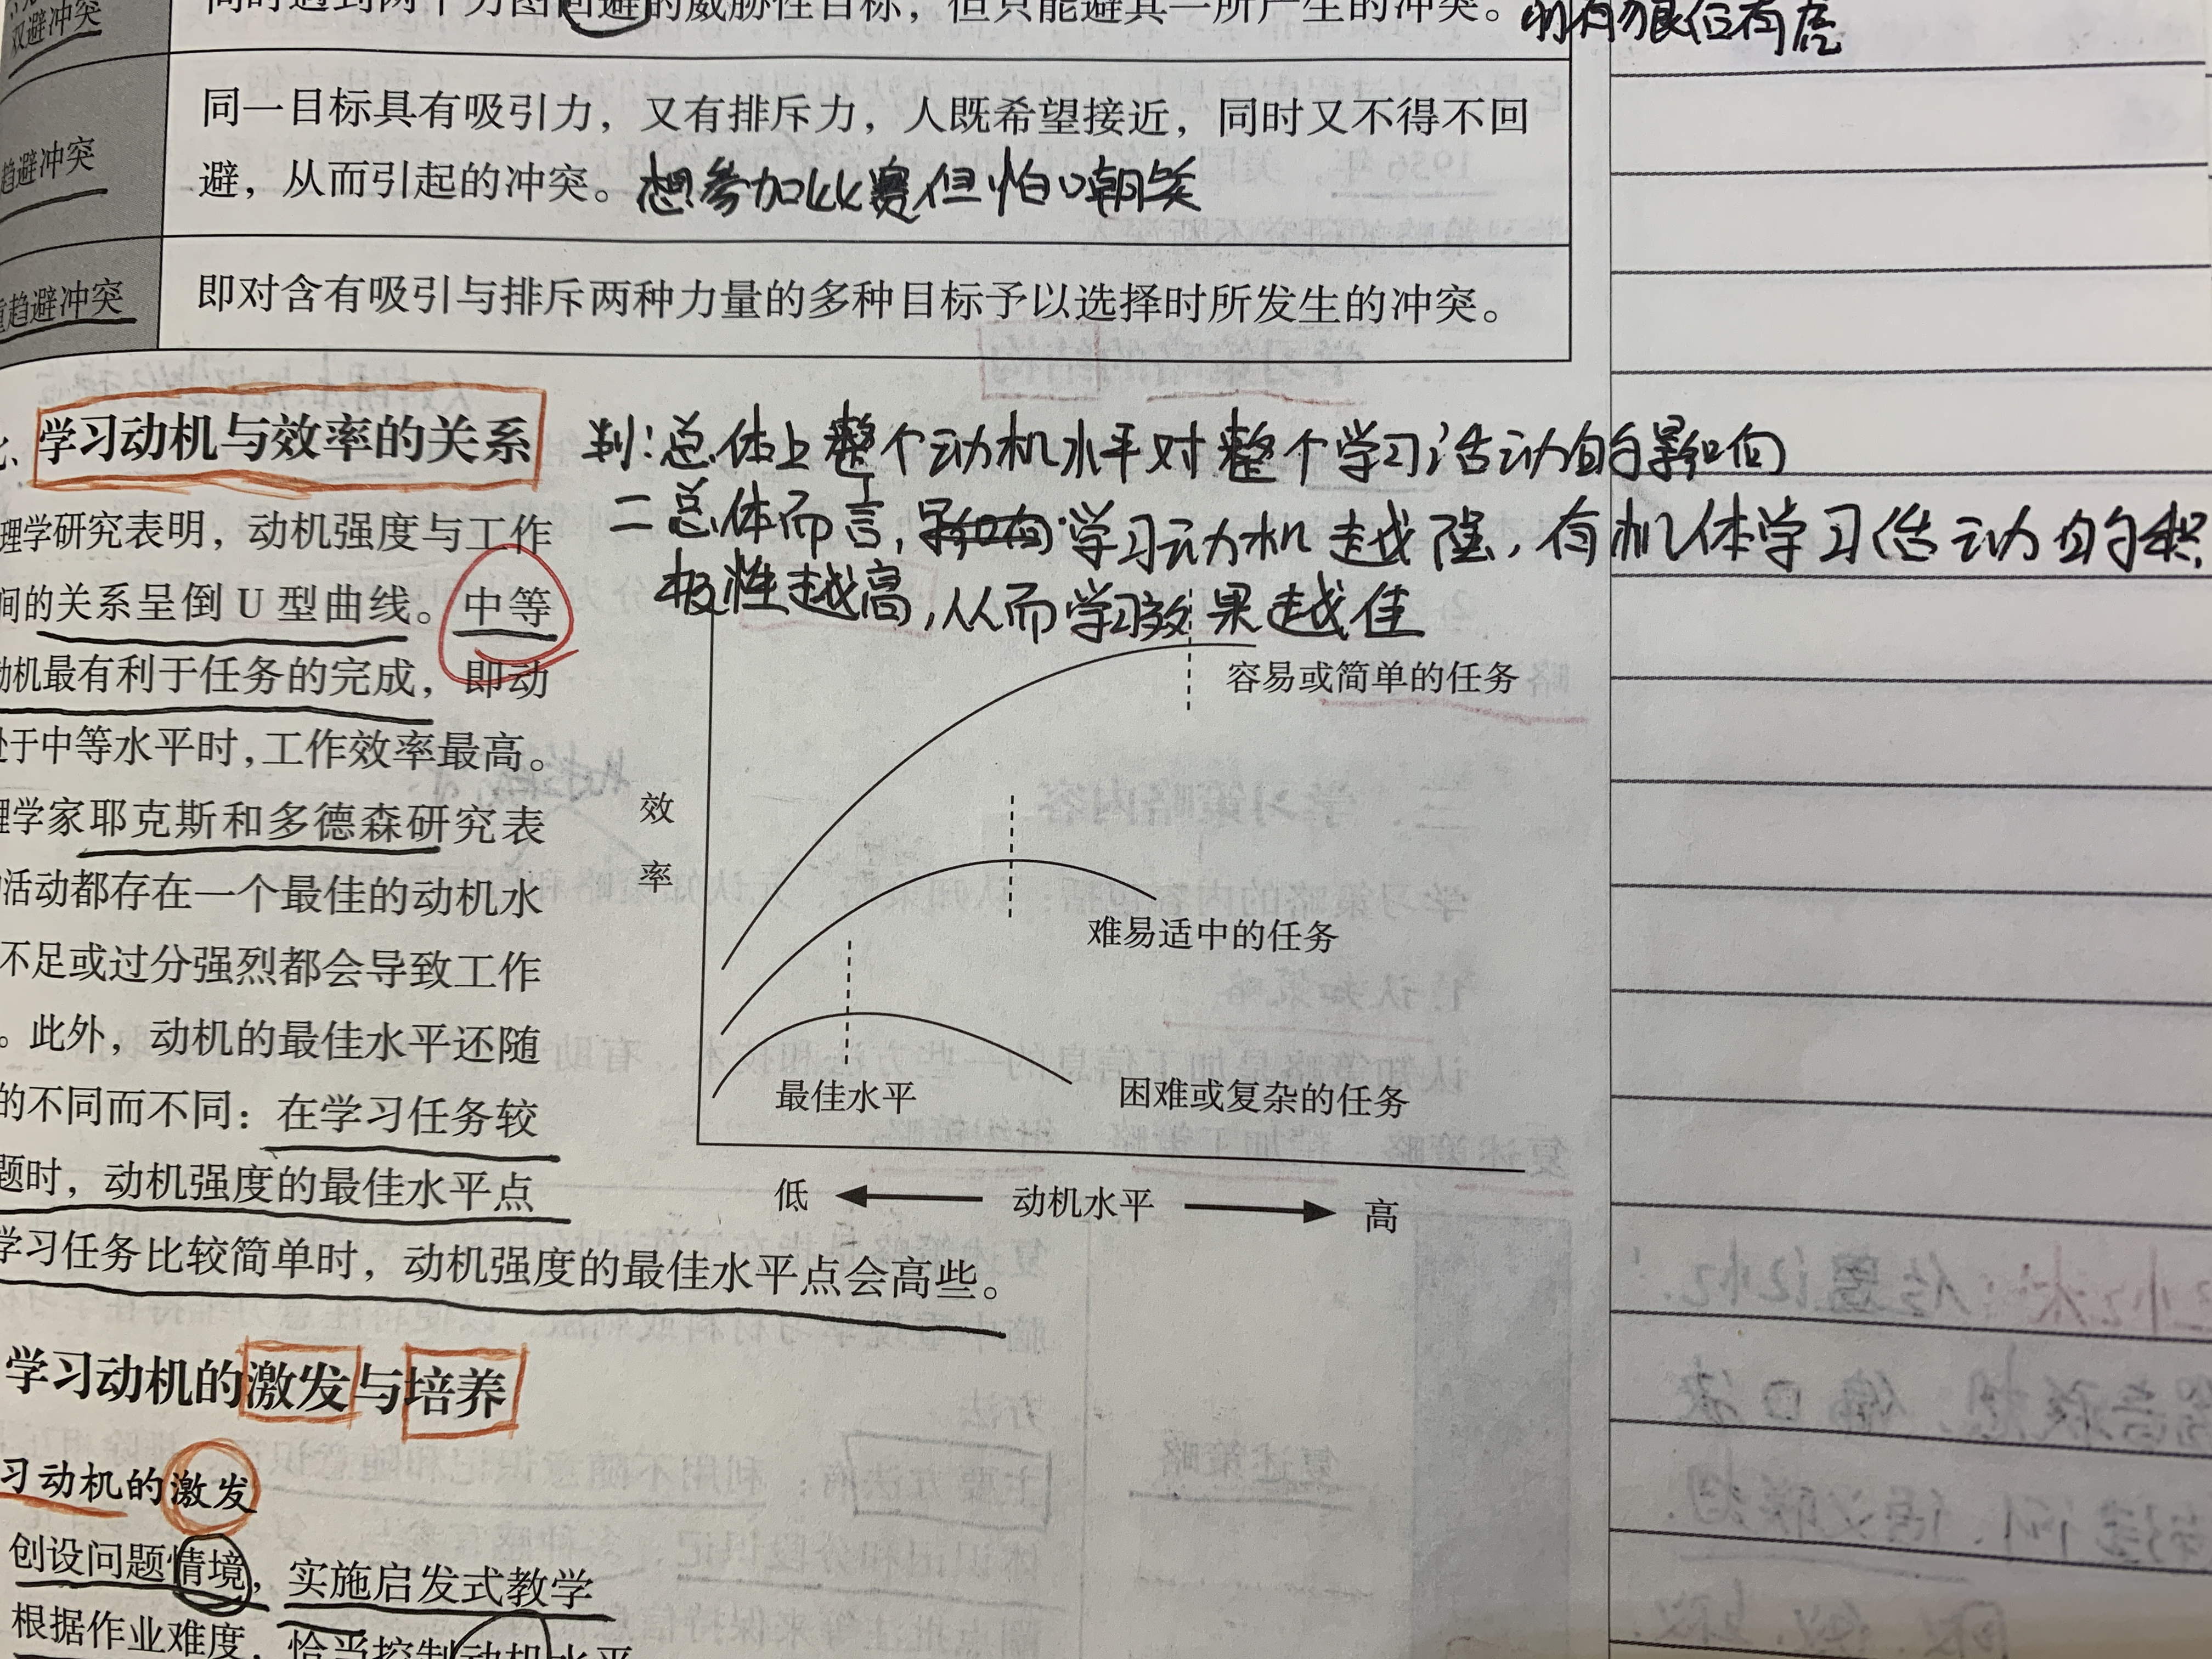 双避冲突
同时遇到两个力图回避的威胁性目标，但只能避其一所产生的冲突。前有狼后有虎
趋避冲突
同一目标具有吸引力，又有排斥力，人既希望接近，同时又不得不回
避，从而引起的冲突。想参加比赛但怕嘲笑
重趋避冲突
即对含有吸引与排斥两种力量的多种目标予以选择时所发生的冲突。
学习动机与效率的关系
判：总体上整个动机水平对整个学习活动的影响
二总体而言，学习动机越强，有机体学习活动的积
极性越高，从而学习效果越佳
理学研究表明，动机强度与工作
间的关系呈倒 U 型曲线。中等
动机最有利于任务的完成，即动
处于中等水平时，工作效率最高。
理学家耶克斯和多德森研究表
活动都存在一个最佳的动机水
不足或过分强烈都会导致工作
。此外，动机的最佳水平还随
的不同而不同：在学习任务较
题时，动机强度的最佳水平点
学习任务比较简单时，动机强度的最佳水平点会高些。
效
率
容易或简单的任务
难易适中的任务
最佳水平
困难或复杂的任务
低
动机水平
高
学习动机的激发与培养
习动机的激发
创设问题情境，实施启发式教学
根据作业难度，恰当控制动机水平